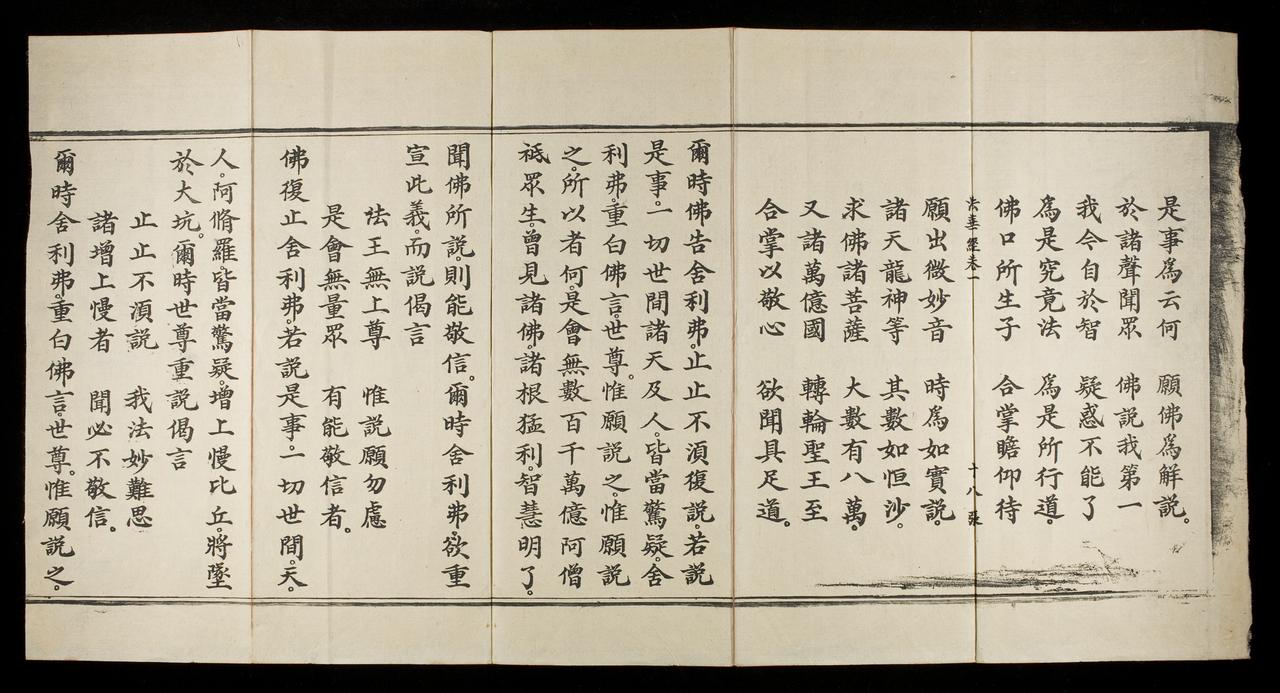 是事爲云何　願佛爲解説。
於諸聲聞眾　佛説我第一
我今自於智　疑惑不能了
爲是究竟法　爲是所行道。
佛口所生子　合掌瞻仰待
法華經卷一　十八張
願出微妙音　時爲如實説。
諸天龍神等　其數如恒沙。
求佛諸菩薩　大數有八萬。
又諸萬億國　轉輪聖王至
合掌以敬心　欲聞具足道。
爾時佛告舍利弗。止止不湏復説。若説
是事。一切世間諸天及人。皆當驚疑。舍
利弗。重白佛言。世尊。惟願説之。惟願説
之。所以者何。是會無數百千萬億阿僧
祇眾生。曾見諸佛。諸根猛利。智慧明了。
聞佛所説。則能敬信。爾時舍利弗。欲重
宣此義。而説偈言
法王無上尊　惟説願勿慮
是會無量眾　有能敬信者。
佛復止舍利弗。若説是事。一切世間。天。
人。阿脩羅。皆當驚疑。增上慢比丘。將墜
於大坑。爾時世尊重説偈言
止止不湏説　我法妙難思
諸增上慢者　聞必不敬信。
爾時舍利弗。重白佛言。世尊。惟願説之。